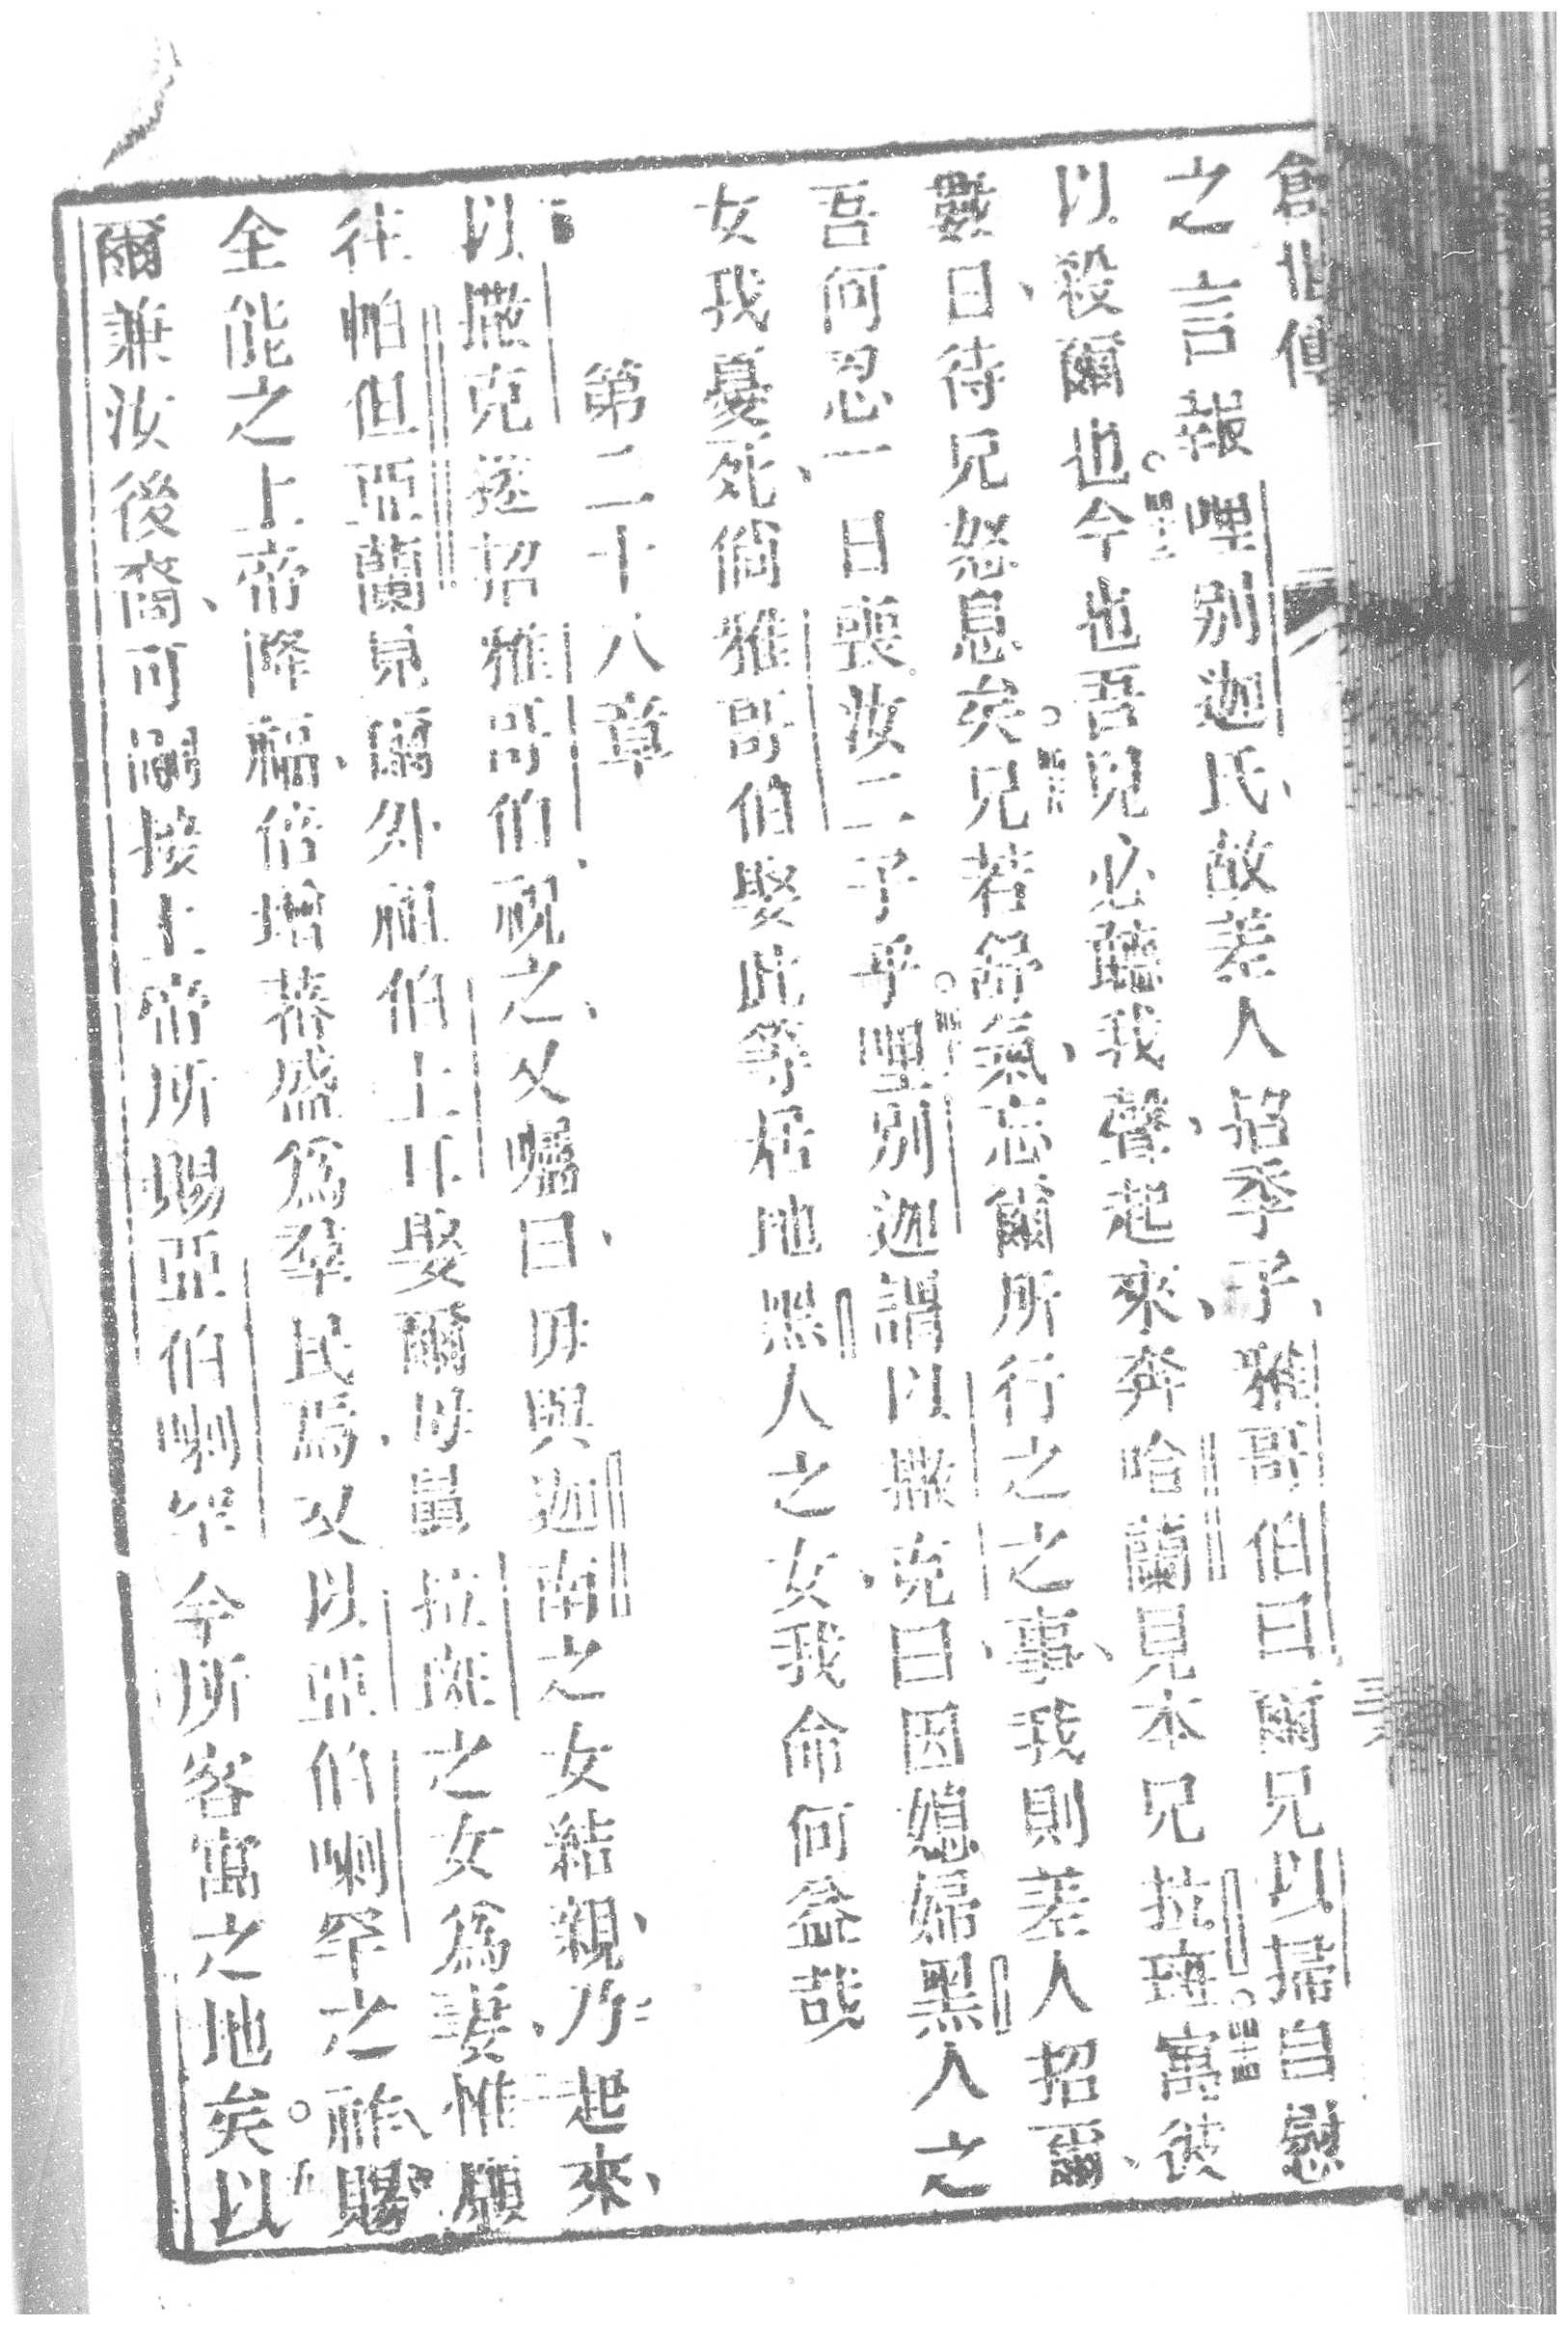 創世傳
之言報哩別迦氏、故差人招季子、雅哥伯曰爾兄以掃自慰
以殺爾也。今也吾兒必聽我聲、起來、奔哈蘭見本兄拉班。寓彼
數日、待兄怒息矣。兄若舒氣、忘爾所行之之事、我則差人招爾、
吾何忍一日喪汝二子乎。哩別迦謂以撒克曰、因媳婦黑人之
女、我憂死、倘雅哥伯娶此等居地黑人之女、我命何益哉
第二十八章
以撒克遂招雅哥伯、祝之、又囑曰、毋與迦南之女結親、乃起來、
往帕但亞蘭、見爾外祖伯土耳、娶爾母舅拉班之女為妻、惟願
全能之上帝降福、倍增蕃盛、為羣民焉、又以亞伯喇罕之祚賜
爾兼汝後裔、可嗣接上帝所賜亞伯喇罕今所客寓之地矣。以